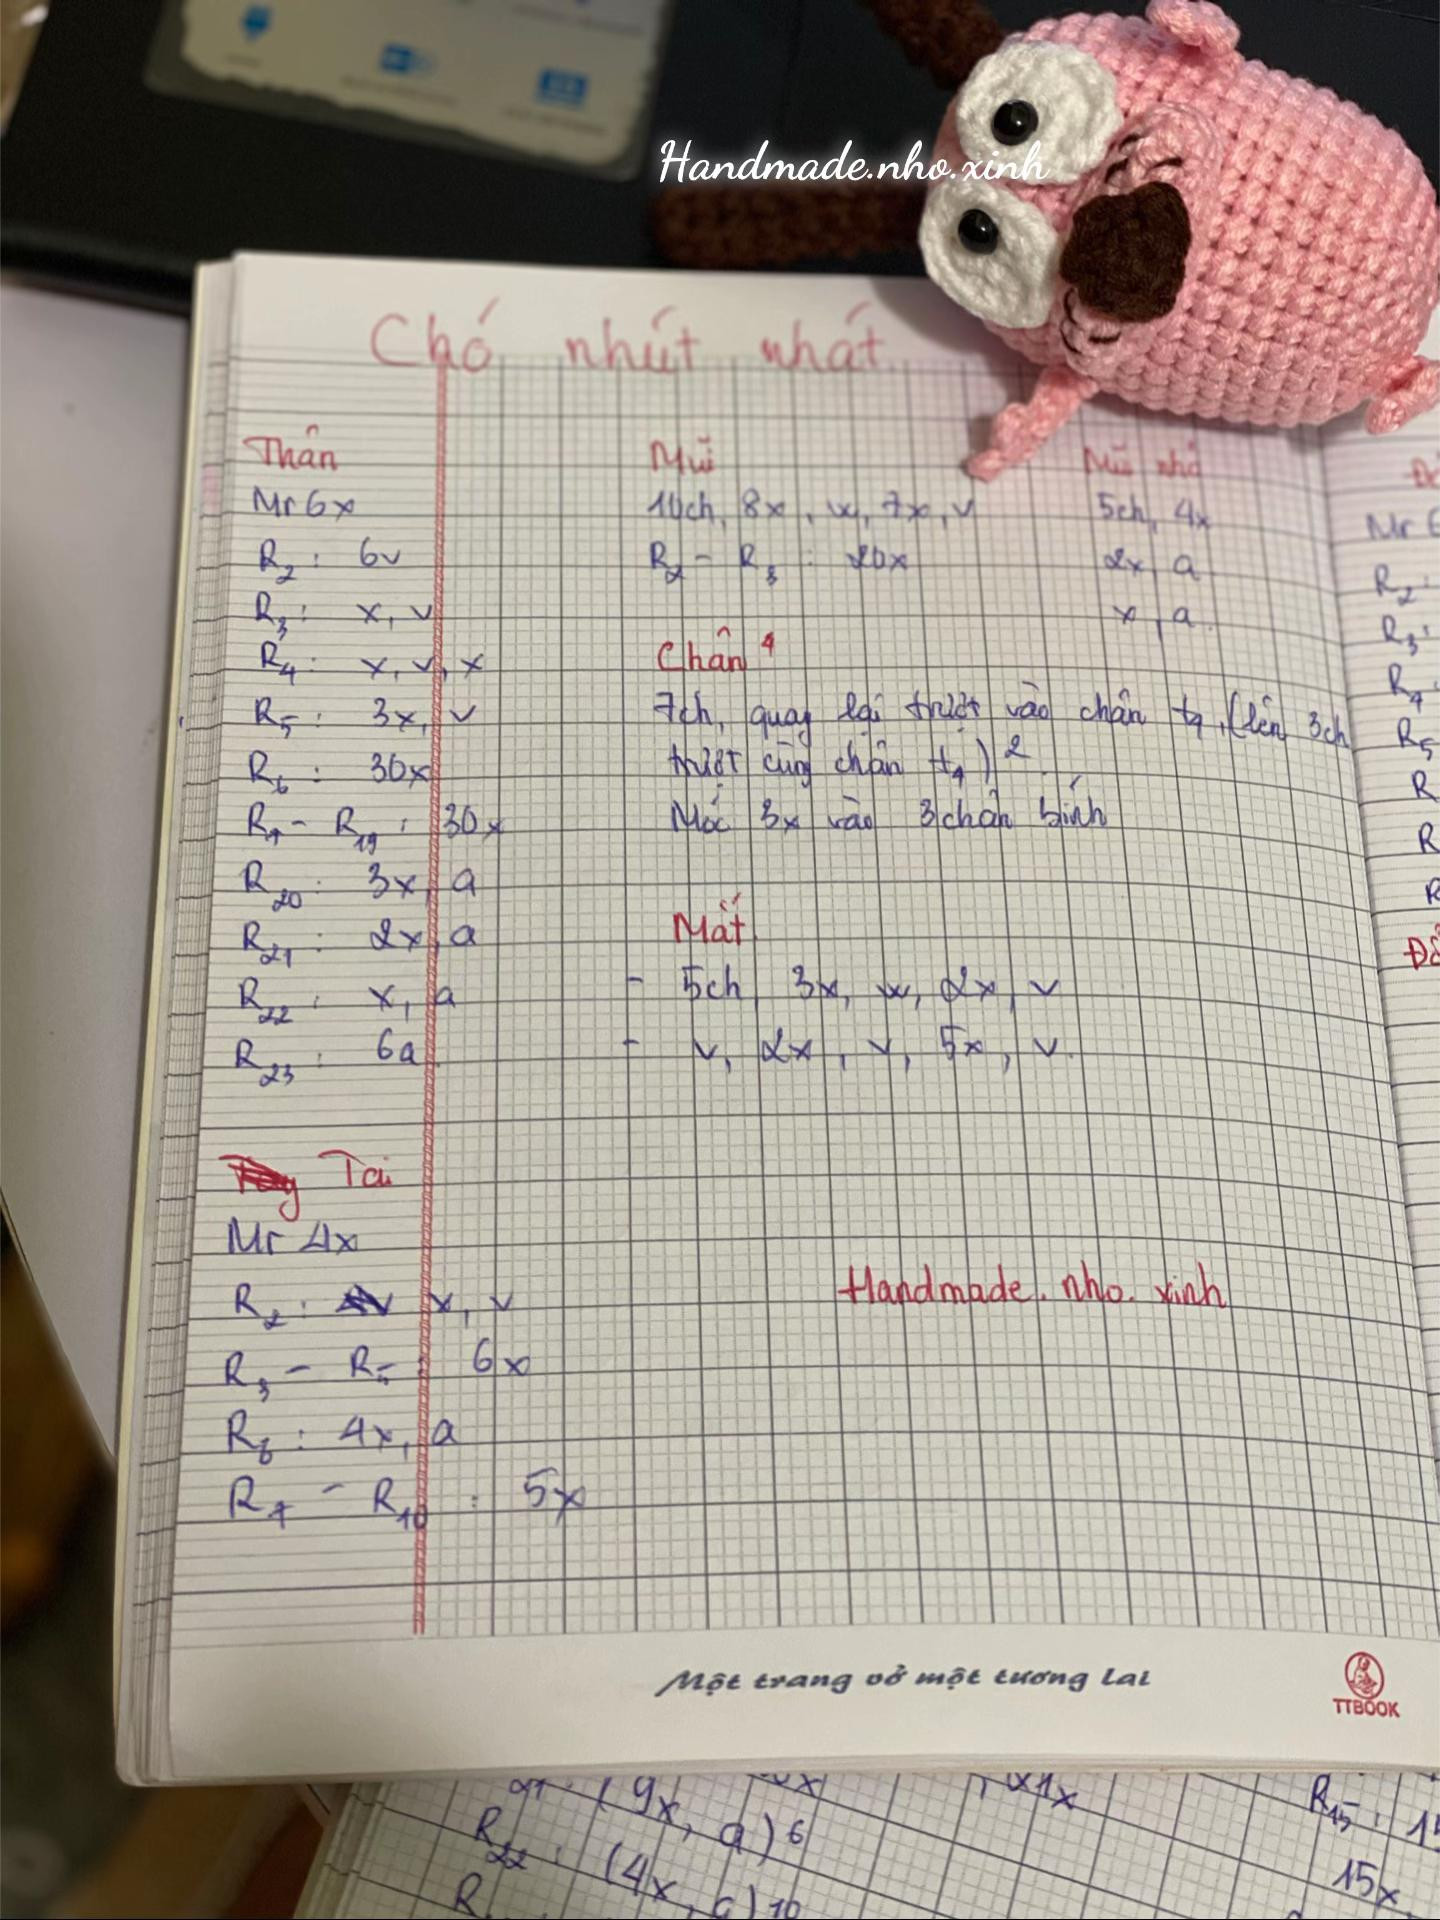 Handmade.nho.xinh
Chó nhút nhát
Thân
Mr 6x
R2 : 6v
R3 : x, v
R4 : x, v, x
R5 : 3x, v
R6 : 30x
R7 - R19 : 30x
R20 : 3x, a
R21 : 2x, a
R22 : x, a
R23 : 6a
Tai
Mr 4x
R2 : x, v
R3 - R5 : 6x
R6 : 4x, a
R7 - R10 : 5x
Mũi
10ch, 8x, w, 7x, v
R2 - R3 : 20x
Chân 4
7ch, quay lại trượt vào chân t4, (lên 3ch
trượt cùng chân t4)2
Móc 3x vào 3 chân bính
Mắt
- 5ch 3x, w, 2x, v
- v, 2x, v, 5x, v.
Mũi nhỏ
5ch, 4x
2x, a
x, a
Handmade. nho. xinh
Mr 6
R2 :
R3 :
R4
R5
R
R
R
Một trang vở một tương lai
TTBOOK
(9x, a)6
R22 : (4x, a)10
R15 : 15
15x